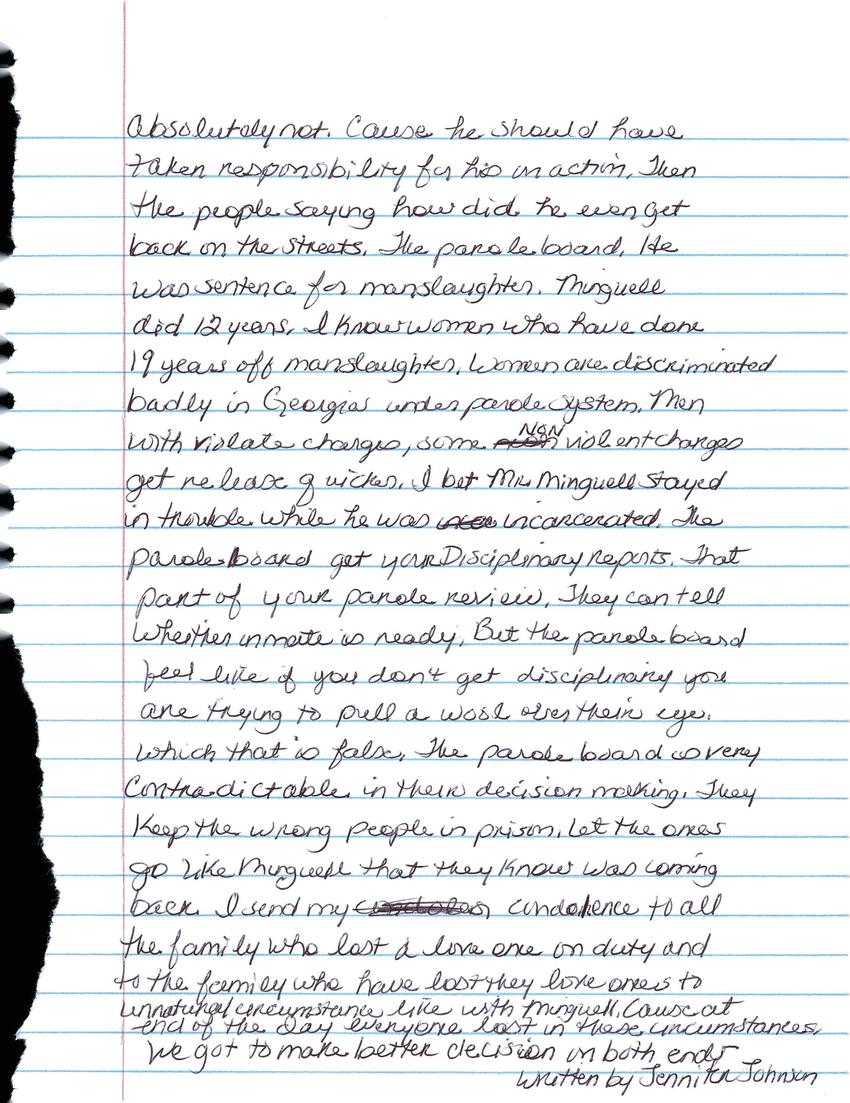 Absolutely not. Cause he should have
taken responsibility for his in action. Then
the people saying how did he even get
back on the streets. The parole board. He
was sentence for manslaughter. Minguell
did 12 years. I know women who have done
19 years off manslaughter. Women are discriminated
badly in Georgias under parole system. Men
with violate charges, some NON violent charges
get release quicker. I bet Mr. Minguell stayed
in trouble while he was incarcerated. The
parole board get your Disciplinary reports. That
part of your parole review. They can tell
whether inmate is ready. But the parole board
feel like if you don't get disciplinary you
are trying to pull a wool over their eye.
Which that is false. The parole board is very
contradictable in their decision making. They
keep the wrong people in prison. Let the ones
go like Minguell that they know was coming
back. I send my condolence to all
the family who lost a love one on duty and
to the family who have lost they love ones to
unnatural circumstance like with Minguell. Cause at
end of the day everyone lost in these circumstances.
We got to make better decision on both ends
Written by Jennifer Johnson